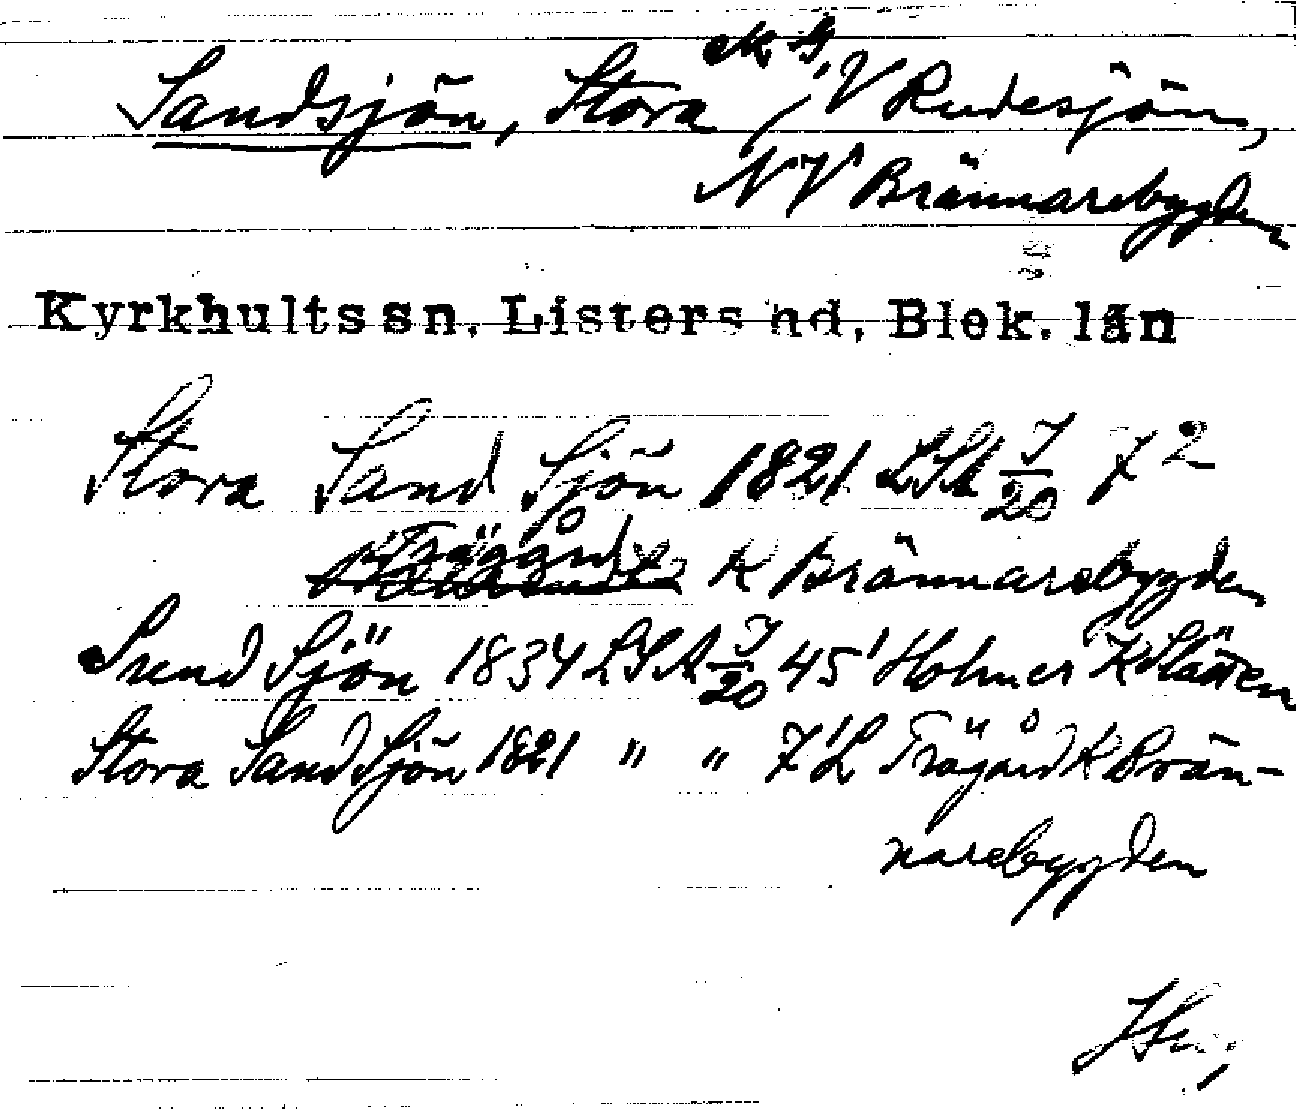 Sandsjön, Stora, V Rudesjön,
NV Brännarebygden
Kyrkhults sn, Listers hd, Blek. län
Stora Sand Sjön 1821 LSA J/20 7 2
Trägård K Brännarebygden
Sund Sjön 1834 LSA J/20 45 Holmer K Slätten
Stora Sand Sjön 1821 " " 7 L Trägård K Brän-
narebygden